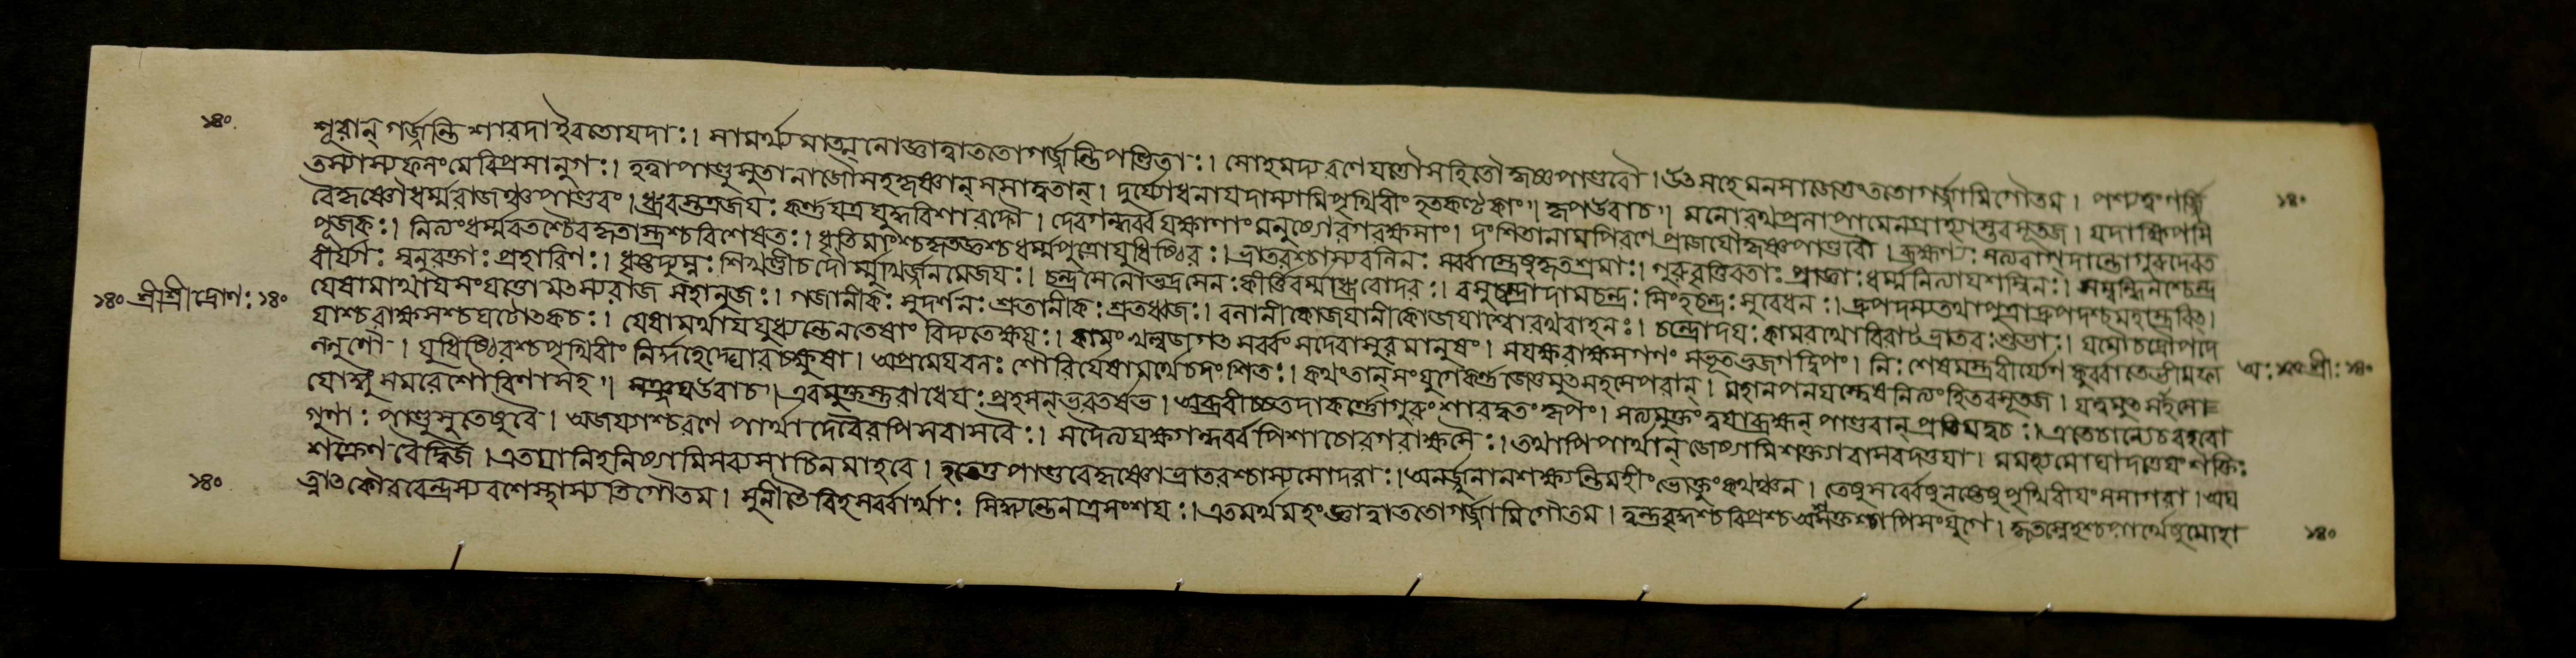 ১৪০
শূরান্ গর্জ্জন্তি শারদাইবতোযদাঃ। সামর্থ্যমাত্মনোজ্ঞাত্বাততোগর্জ্জন্তিপণ্ডিতাঃ। সোহমদ্যরণেযত্তৌসহিতৌকৃষ্ণপাণ্ডবৌ। উৎসহেমনসাজেতুংততোগর্জ্জামিগৌতম। পশ্যত্বংগর্জ্জি
১৪০
তস্যাস্যফলংমেবিপ্রসানুগঃ। হত্বাপাণ্ডুসুতানাজৌসহকৃষ্ণান্সসাত্বতান্। দুর্য্যোধনাযদাস্যামিপৃথিবীংহতকণ্টকাং॥ কৃপউবাচ॥ মনোরথপ্রলাপামেনগ্রাহ্যাস্তবসূতজ। যদাক্ষিপসি
বৈকৃষ্ণৌধর্ম্মরাজঞ্চপাণ্ডবং। ধ্রুবস্তত্রজযঃ কর্ণযত্রযুদ্ধবিশারদৌ। দেবগন্ধর্ব্বযক্ষাণাংমনুষ্যোরগরক্ষসাং। দংশিতানামপিরণে প্রজেযৌকৃষ্ণপাণ্ডবৌ। ব্রহ্মণ্যঃ সত্যবাগ্দান্তোগুরুদেবত
পূজকঃ। নিত্যংধর্ম্মরতশ্চৈবকৃতাস্ত্রশ্চবিশেষতঃ। ধৃতিমাংশ্চকৃতজ্ঞশ্চধর্ম্মপুত্রোযুধিষ্ঠিরঃ। ভ্রাতরশ্চাস্যবলিনঃ সর্ব্বাস্ত্রেষুকৃতশ্রমাঃ। গুরুবৃত্তিরতাঃ প্রাজ্ঞাঃ ধর্ম্মনিত্যাযশস্বিনঃ। সম্বন্ধিনশ্চেন্দ্র
বীর্য্যাঃ স্বনুরক্তাঃ প্রহারিণঃ। ধৃষ্টদ্যুম্নঃ শিখণ্ডীচদৌর্ম্মুখির্জ্জনমেজযঃ। চন্দ্রসেনোভদ্রসেনঃ কীর্ত্তিবর্ম্মাধ্রুবোদরঃ। বসুচন্দ্রোদামচন্দ্রঃ সিংহচন্দ্রঃ সুবেধনঃ। দ্রুপদস্যতথাপুত্রাদ্রুপদশ্চমহাস্ত্রবিৎ।
১৪০ শ্রীশ্রীদ্রোণঃ ১৪০
যেষামর্থাযসংযত্তোমৎস্যরাজ সহানুজঃ। গজানীকঃ সুদর্শনঃ শ্রুতানীকঃ শ্রুতধ্বজঃ। বলানীকোজযানীকোজযাশ্বোরথবাহনঃ। চন্দ্রোদযঃ কামরথোবিরাটভ্রাতরঃ শুভাঃ। যমৌচদ্রৌপদে
যাশ্চরাক্ষসশ্চঘটোৎকচঃ। যেষামর্থাযযুধ্যন্তেনতেষাং বিদ্যতেক্ষযঃ। কামংখলুজগৎসর্ব্বংসদেবাসুরমানুষং। সযক্ষরাক্ষসগণং সভূতভুজগদ্বিপং। নিঃশেষমস্ত্রবীর্য্যেণ কুর্ব্বাতেভীমফা
অঃ ১৫৭ শ্রীঃ ১৪০
ল্গুণৌ। যুধিষ্ঠিরশ্চপৃথিবীং নির্দ্দহেদ্ঘোরচক্ষুষা। অপ্রমেযবলঃ শৌরির্যেষামর্থেচদংশিতঃ। কথংতান্সংযুগেকর্ণজেতুমুৎসহসেপরান্। মহানপনযস্ত্বেষনিত্যংহিতবসূতজ। যস্ত্বমুৎসহসে
যোদ্ধুংসমরেশৌরিণাসহ॥ সঞ্জযউবাচ॥ এবমুক্তস্তুরাধেযঃ প্রহসন্ভরতর্ষভ। অব্রবীচ্চতদাকর্ণোগুরুংশারদ্বতংকৃপং। সত্যমুক্তংত্বযাব্রহ্মন্ পাণ্ডবান্ প্রতিযদ্বচঃ। এতেচান্যেচবহবো
গুণাঃ পাণ্ডুসুতেষুবৈ। অজযাশ্চরণে পার্থাদেবৈরপিসবাসবৈঃ। সদৈত্যযক্ষগন্ধর্ব্বপিশাচোরগরাক্ষসৈঃ। তথাপিপার্থান্জেষ্যামিশক্ত্যাবাসবদত্তযা। মমহ্যমোঘাদত্তেযংশক্তিঃ
শক্রেণ বৈদ্বিজ। এতযানিহনিষ্যামিসব্যসাচিনমাহবে। হতেতুপাণ্ডবেকৃষ্ণোভ্রাতরশ্চাস্যসোদরাঃ। অনর্জ্জুনানশক্ষ্যন্তিমহীংভোক্তুংকথঞ্চন। তেষুসর্ব্বেষুনষ্টেষুপৃথিবীযংসসাগরা। অয
১৪০
ত্নাৎকৌরবেন্দ্রস্যবশেস্থাস্যতিগৌতম। সুনীতৈরিহসর্ব্বার্থাঃ সিদ্ধ্যন্তেনাত্রসংশযঃ। এতমর্থমহংজ্ঞাত্বাততোগর্জ্জামিগৌতম। ত্বন্তুবৃদ্ধশ্চবিপ্রশ্চঅশক্তশ্চাপিসংযুগে। কৃতস্নেহশ্চপার্থেষুমোহা
১৪০